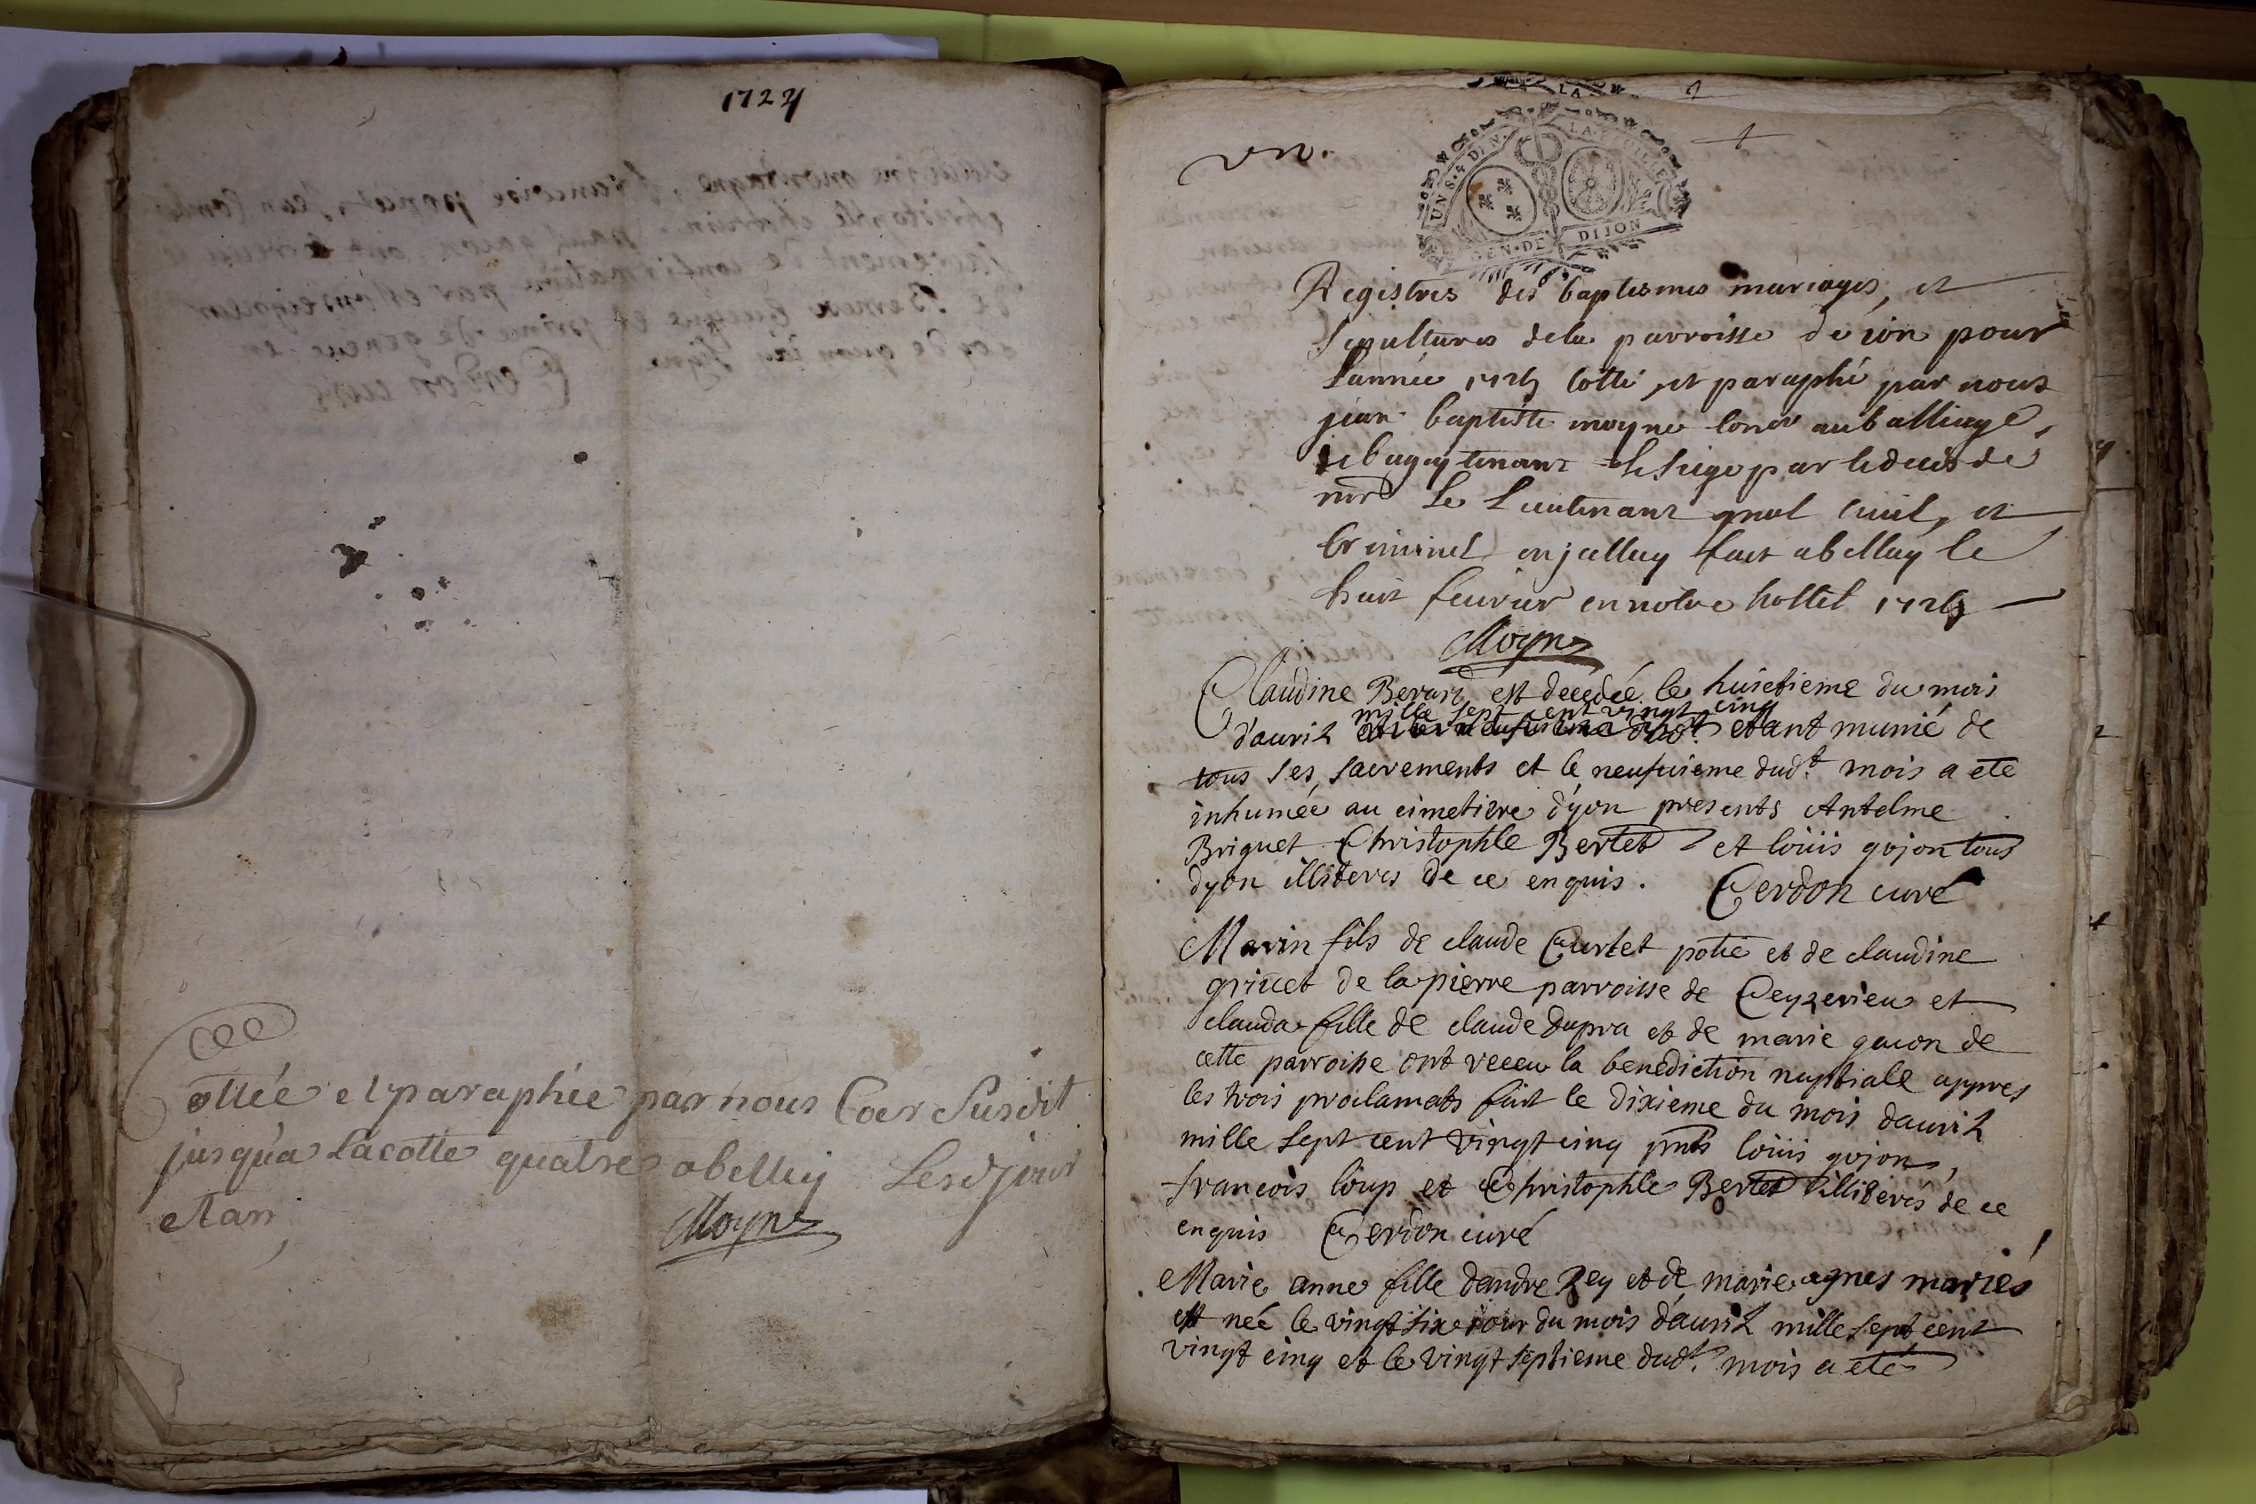 1724
Cottée et paraphée par nous Coer Susdit
jusqua Lacotte quatre a belley Lesd jour
et an
Moyne
un.
1
UN S. 4 DEN. LA FEUILLE
GEN. DE DIJON
Registres des baptesmes mariages, et
Sepultures dela parroisse de ion pour
Lannée 1725 Cotté, et paraphé par nous
jean baptiste moyne Coner au balliage
de bugey tenant le Siege par le deces de
mr Le Lieutenant gnal Civil, et
Criminel en jcelluy fait a belley le
huit fevrier en notre hostel 1725
Moyne
Claudine Berard est decedée le huictieme du mois
mille sept cent vingt cinq
d'avril etant munie de
tous ses sacrements et le neufvieme dud.t mois a ete
inhumée au cimetiere d'yon presents Antelme
Briguet Christophle Bertet et loüis gojon tous
dyon illiteres de ce enquis. Cerdon curé
Marin fils de claude Curtet potie et de claudine
grivet de la pierre parroisse de Ceyzerieu et
clauda fille de claude dupra et de marie gacon de
cette parroisse ont receu la benediction nuptiale appres
les trois proclamats fait le dixieme du mois davril
mille sept cent vingt cinq pnts loüis gojon,
francois loup et Christophle Bertet illiterés de ce
enquis Cerdon curé
Marie anne fille dandre Rey et de marie agnes mariés
est neé le vingt six jour du mois d'avril mille sept cent
vingt cinq et le vingt septieme dud.t mois a eté